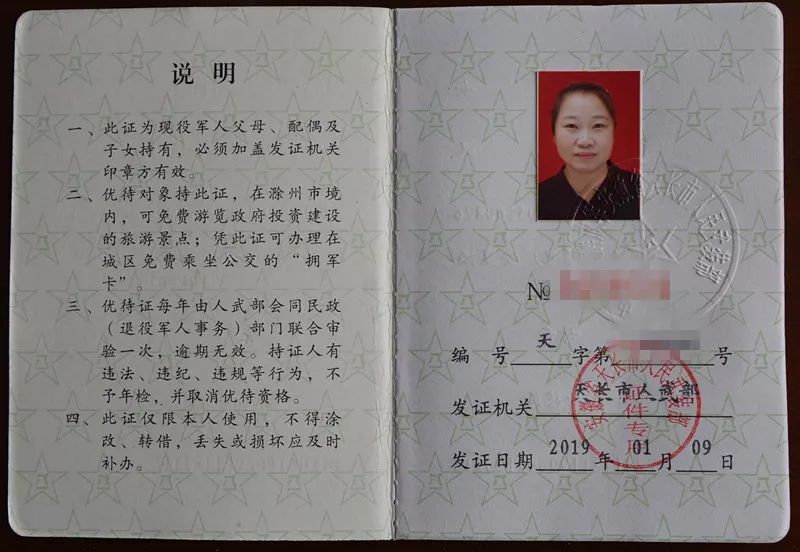 说 明
一、此证为现役军人父母、配偶及
子女持有，必须加盖发证机关
印章方有效。
二、优待对象持此证，在滁州市境
内，可免费游览政府投资建设
的旅游景点；凭此证可办理在
城区免费乘坐公交的“拥军
卡”。
三、优待证每年由人武部会同民政
（退役军人事务）部门联合审
验一次，逾期无效。持证人有
违法、违纪、违规等行为，不
予年检，并取消优待资格。
四、此证仅限本人使用，不得涂
改、转借，丢失或损坏应及时
补办。
№
编 号 天 字第 号
发证机关 天长市人武部
证件专用
发证日期 2019 年 01 月 09 日